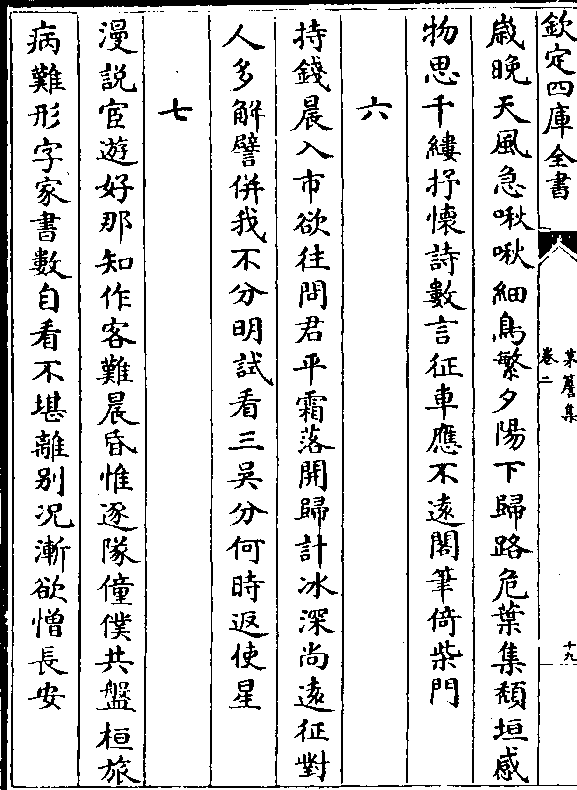 欽定四庫全書
東簷集
卷二
十九
歲晚天風急啾啾細鳥繁夕陽下歸路危葉集頹垣感
物思千縷抒懷詩數言征車應不遠閣筆倚柴門
六
持錢晨入市欲往問君平霜落開歸計冰深尚遠征對
人多解譬併我不分明試看三吳分何時返使星
七
漫説宦遊好那知作客難晨昏惟逐隊僮僕共盤桓旅
病難形字家書數自看不堪離别況漸欲憎長安